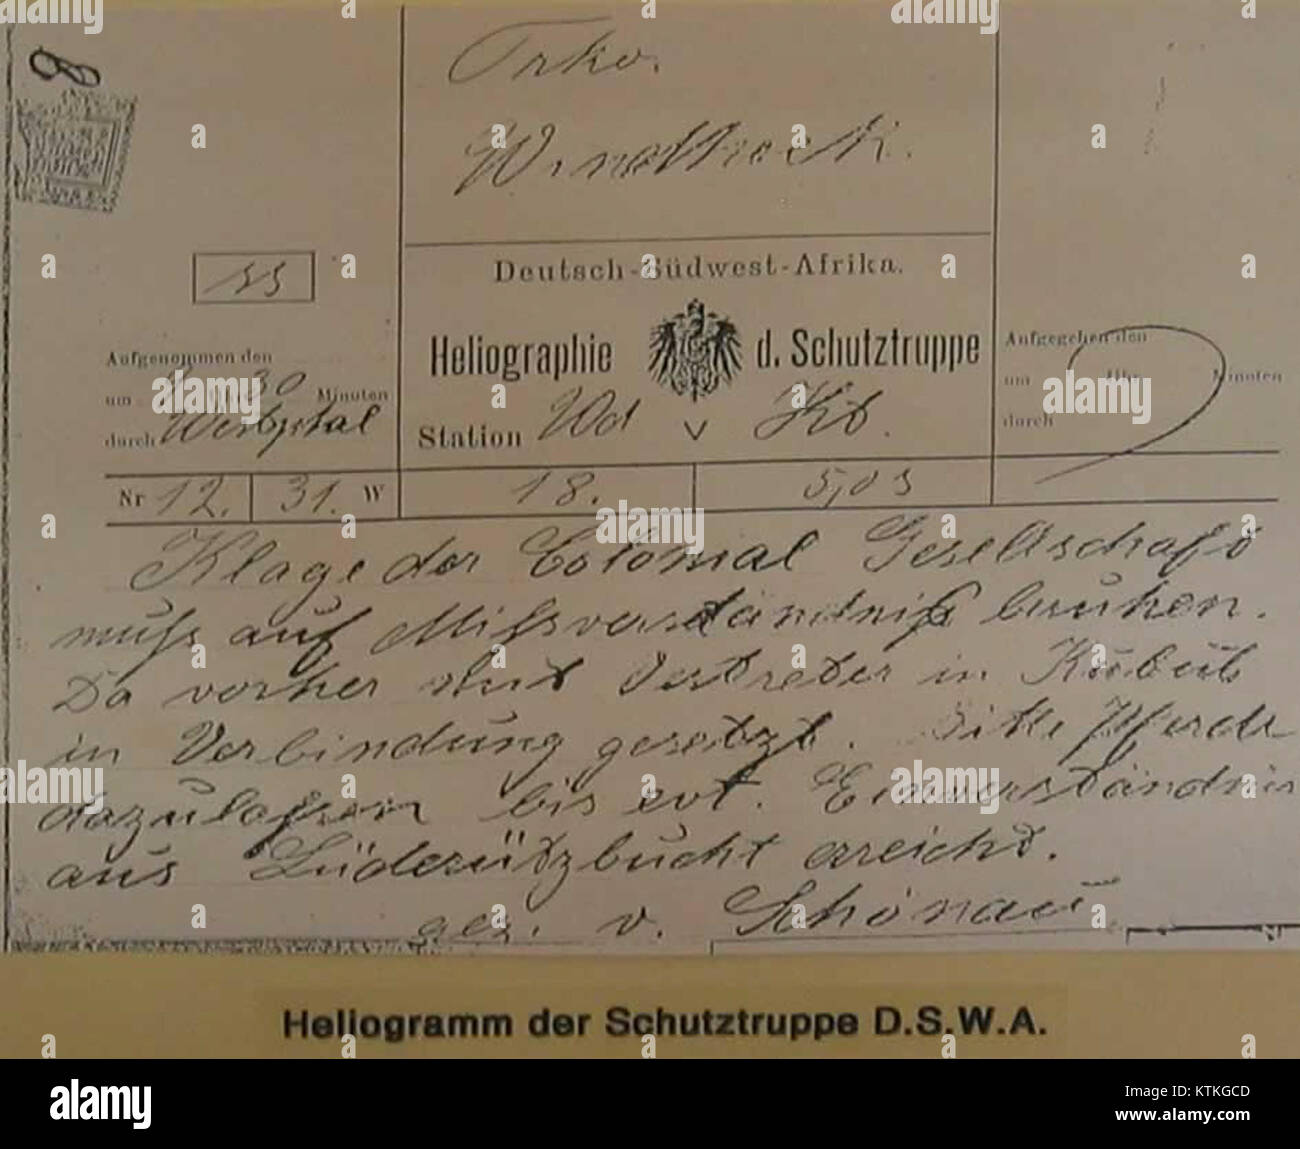 8
Trko.
Windhoek.
Deutsch-Südwest-Afrika.
Heliographie d. Schutztruppe
Station Wd v Kb.
Aufgenommen den
um 9 Uhr 30 Minuten
durch Westphal
Aufgegeben den
um Uhr Minuten
durch
Nr 12. 31. W 18. 5,05
Klage der Colonial Gesellschaft
muß auf Mißverständniß beruhen.
Da vorher mit Vertreter in Kubub
in Verbindung gesetzt. Bitte Pferde
dazulassen bis evt. Einverständnis
aus Lüderützbucht erreicht.
gez. v. Schönau
Heliogramm der Schutztruppe D.S.W.A.
alamy
Image ID: KTKGCD
www.alamy.com